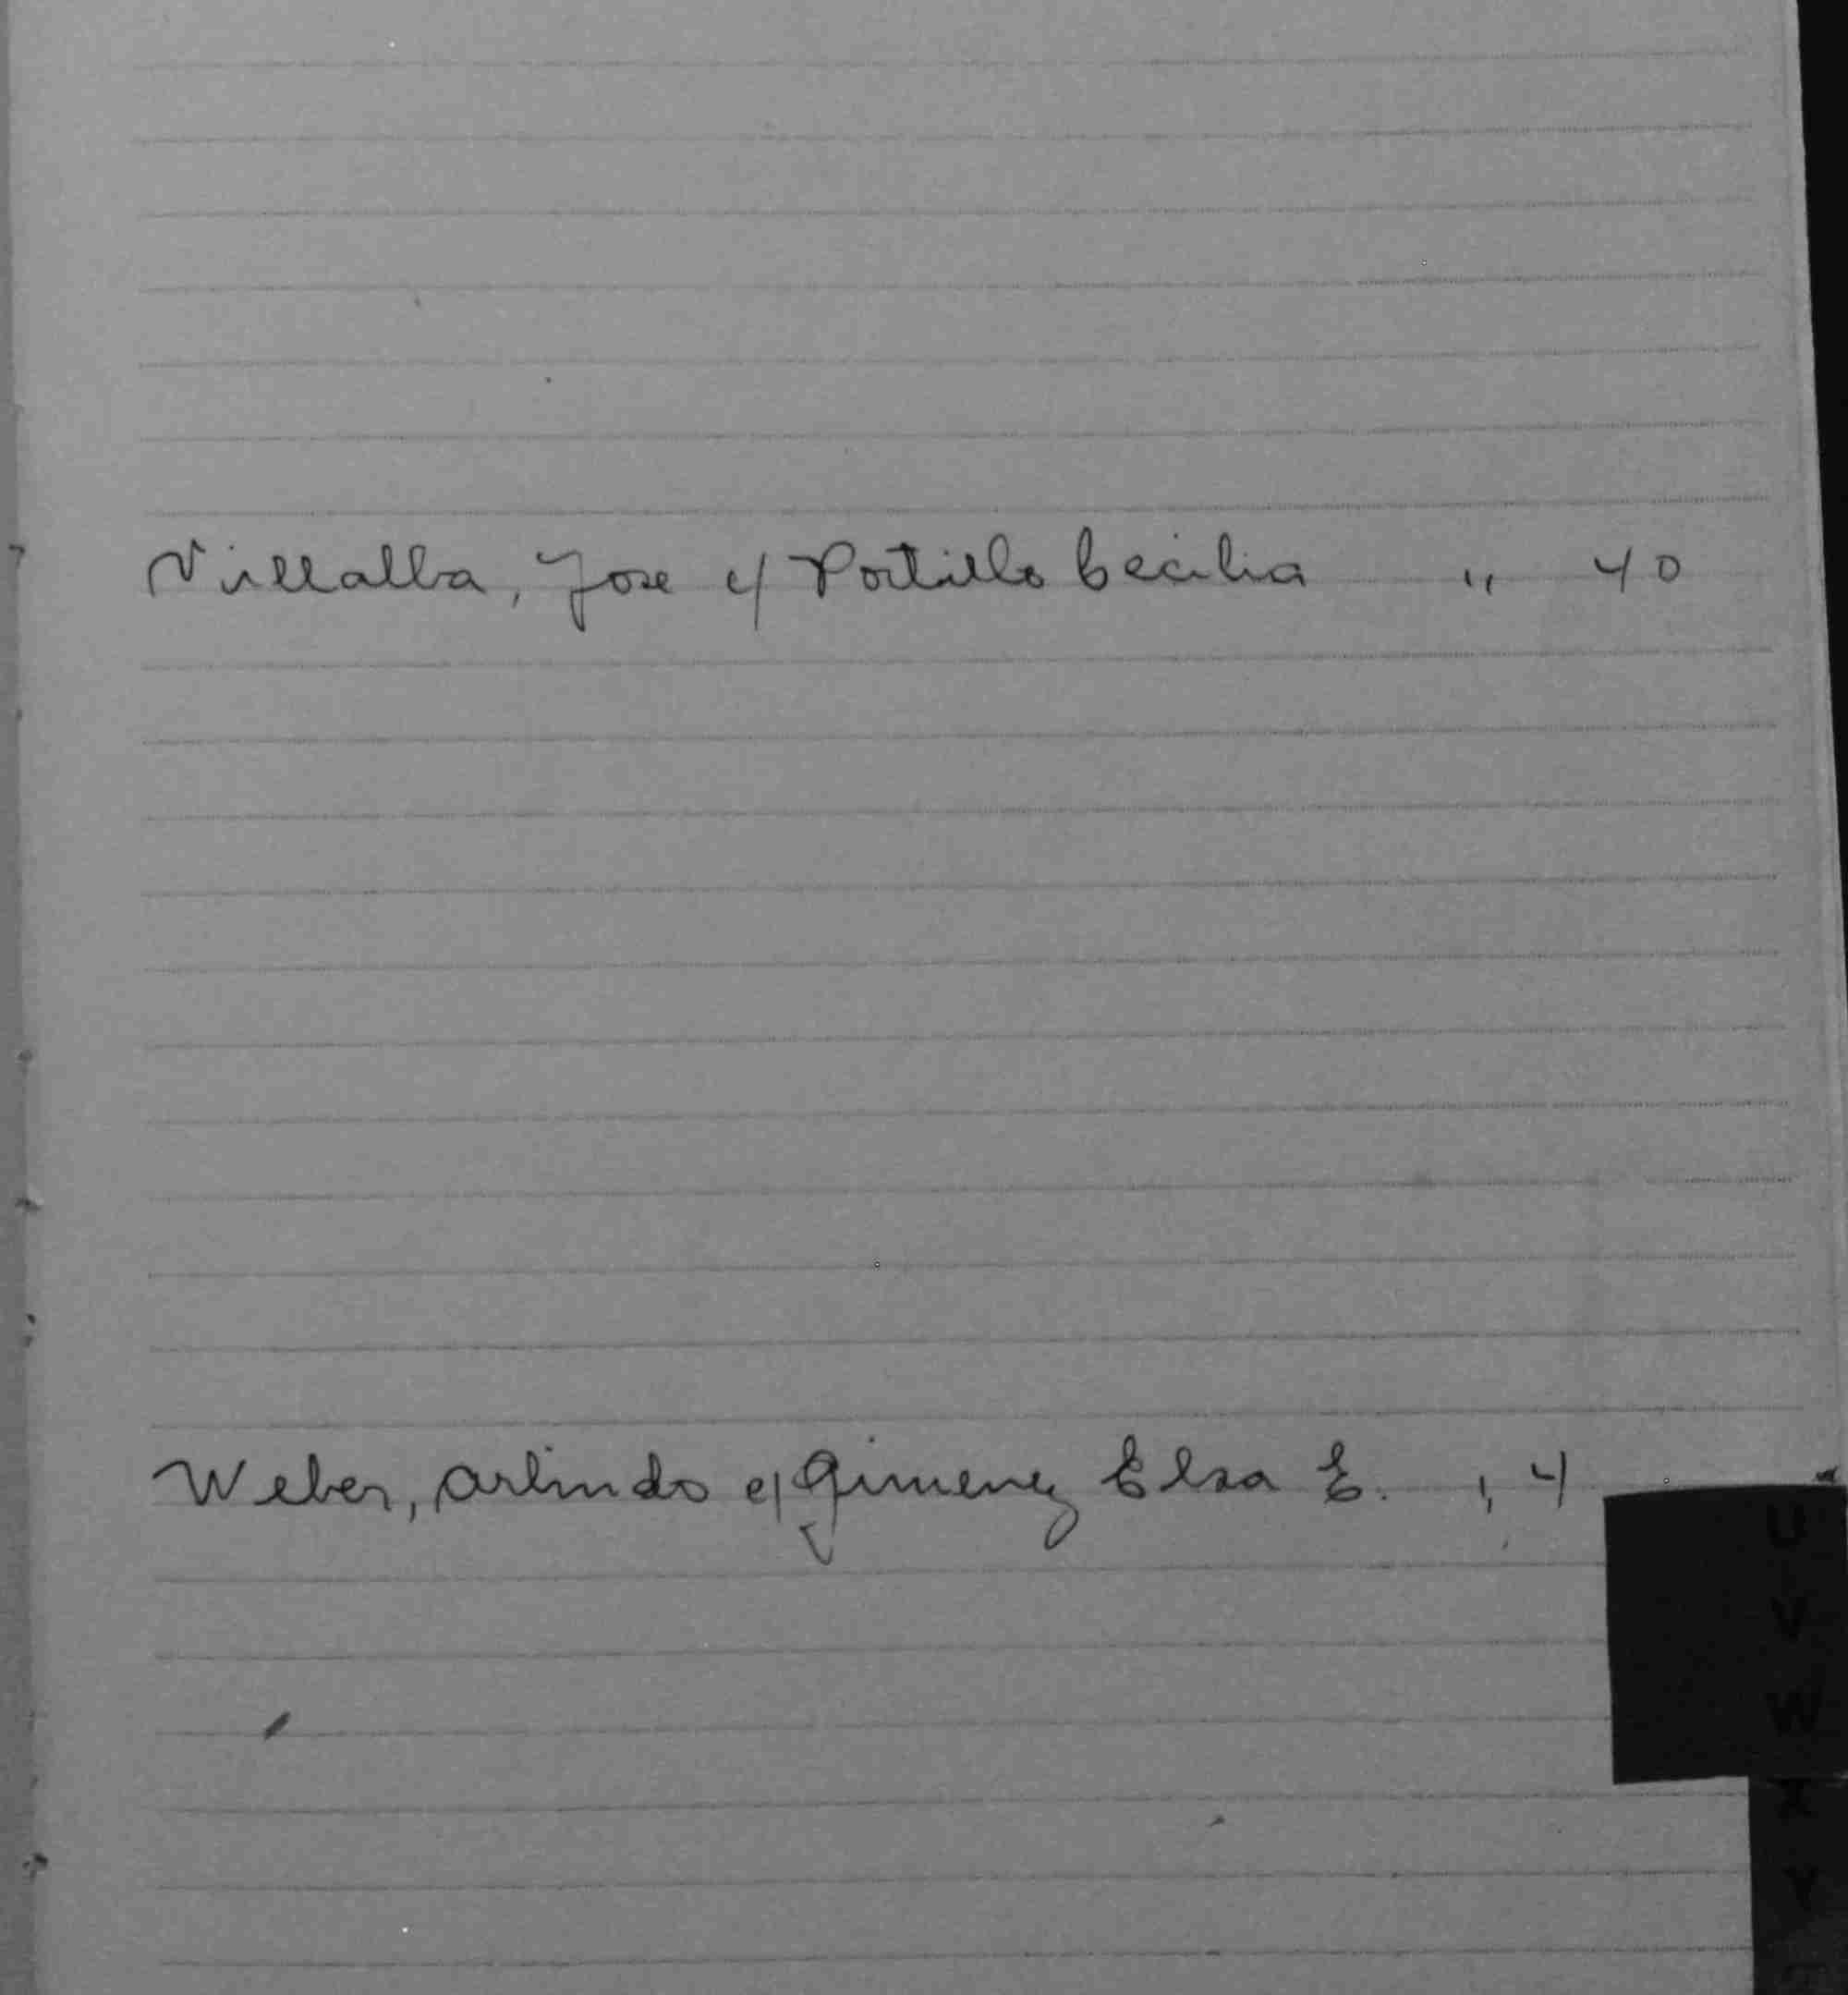 Villalba, Jose c/ Portillo Cecilia " 40
Weber, Arlindo c/ Gimenez Elsa E. " 4
U
V
W
X
Y